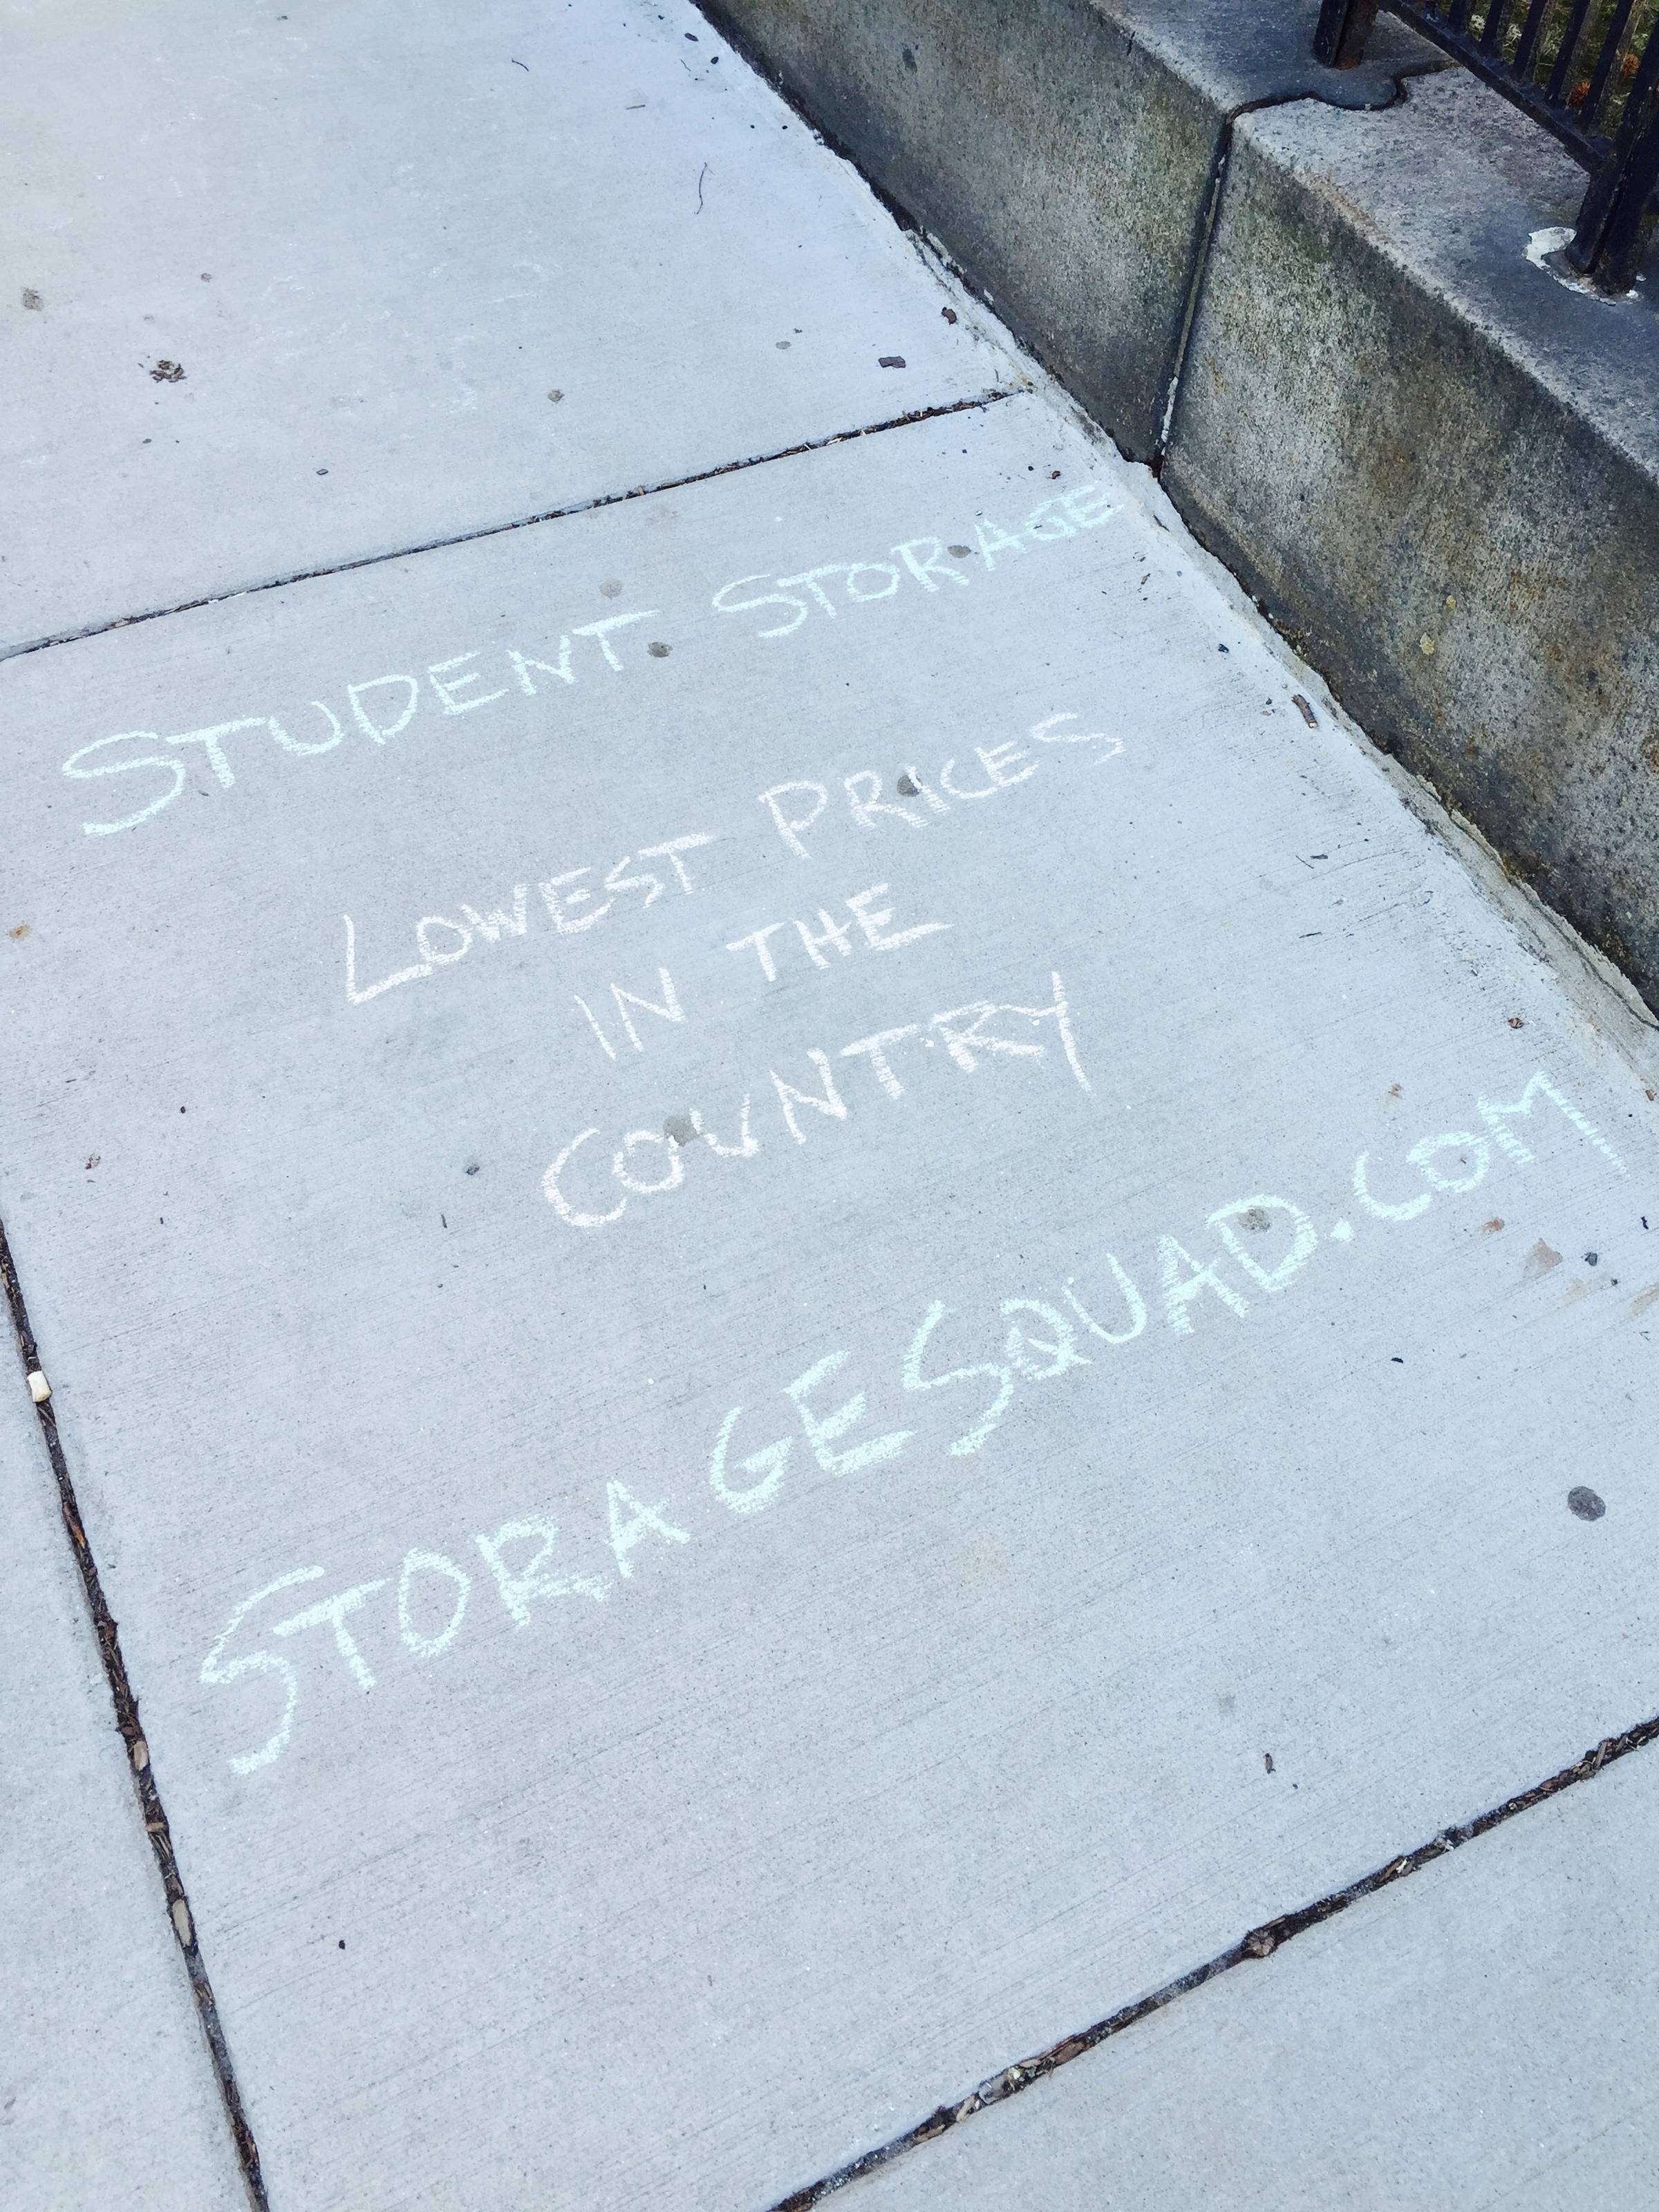 STUDENT STORAGE
LOWEST PRICES
IN THE
COUNTRY
STORAGESQUAD.COM